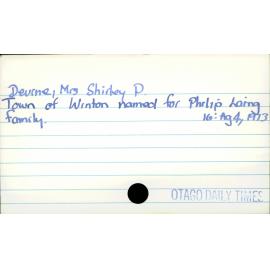 Deurne, Mrs Shirley P.
Town of Winton named for Philip Laing
family. 16: Ag 4, 1973
OTAGO DAILY TIMES